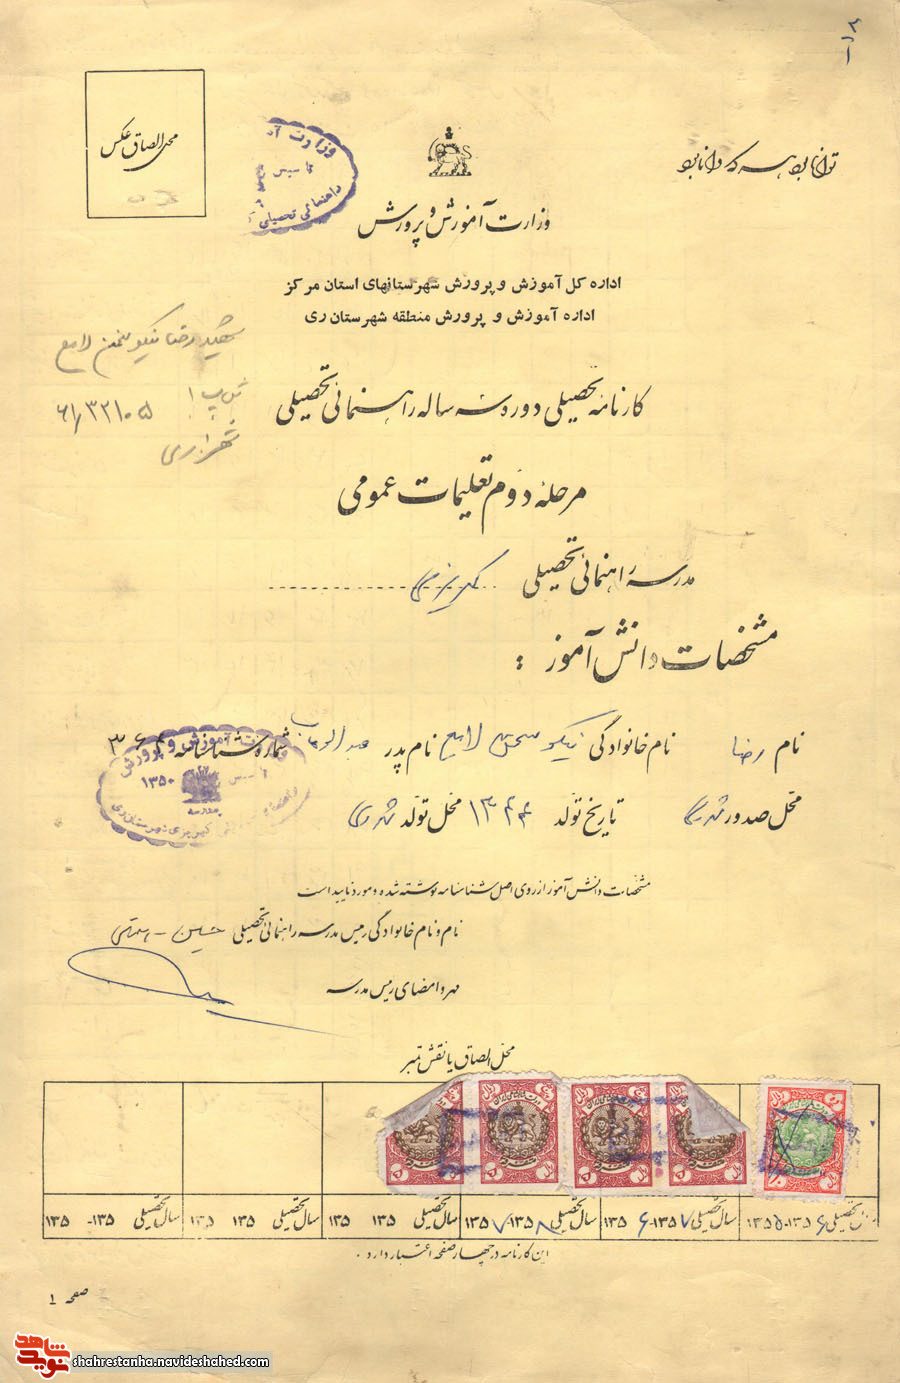 محل الصاق عکس
توانا بود هر که دانا بود
وزارت آموزش و پرورش
اداره کل آموزش و پرورش شهرستانهای استان مرکز
اداره آموزش و پرورش منطقه شهرستان ری
شهید رضا نیکو سخن لامع
۶۱/۳۲۱۰۵
شهر ری
کارنامه تحصیلی دوره سه ساله راهنمائی تحصیلی
مرحله دوم تعلیمات عمومی
مدرسه راهنمائی تحصیلی
مشخصات دانش آموز :
نام رضا نام خانوادگی نیکو سخن لامع نام پدر عبدالوهاب شماره شناسنامه
محل صدور شهرری تاریخ تولد ۱۳۴۴ محل تولد شهرری
وزارت آموزش و پرورش
۱۳۵۰
مشخصات دانش آموز از روی اصل شناسنامه نوشته شده و مورد تایید است
نام و نام خانوادگی رئیس مدرسه راهنمائی تحصیلی حسین
مهر و امضای رئیس مدرسه
محل الصاق یا نقش تمبر
سال تحصیلی ۱۳۵۶-۱۳۵۵ سال تحصیلی ۱۳۵۷-۱۳۵۶ سال تحصیلی ۱۳۵۸-۱۳۵۷ سال تحصیلی ۱۳۵ ۱۳۵ سال تحصیلی ۱۳۵ ۱۳۵ سال تحصیلی ۱۳۵-۱۳۵
این کارنامه در چهار صفحه اعتبار دارد .
صفحه ۱
نوید شاهد
shahrestanha.navideshahed.com